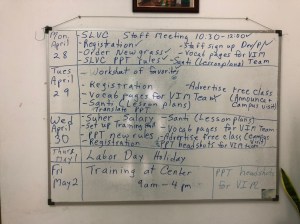 Mon
April
28
- SLVC Staff Meeting 10:30-12:00
- Registration
- Staff sign up
- Order New grass
- Vocal pages for VIM
- SLVC PPT rules
- Santi (Lesson plans) Team
Tues
April
29
Workshop of favorite
- Registration
- Advertise Free class
- Vocab pages for VIM Team
(Announce + Campus visit)
- Santi (Lesson plans)
Translate PPT
Wed
April
30
- Super Salary
- Santi (Lesson plans)
- Set up Training
- Vocab pages for VIM Team
- PPT new rules
- Advertise Free class (Campus visit)
- Registration
- PPT headshots for VIM
Thurs
May 1
Labor Day Holiday
Fri
May 2
Training at Center
9am - 4pm
PPT headshots
for VIPC